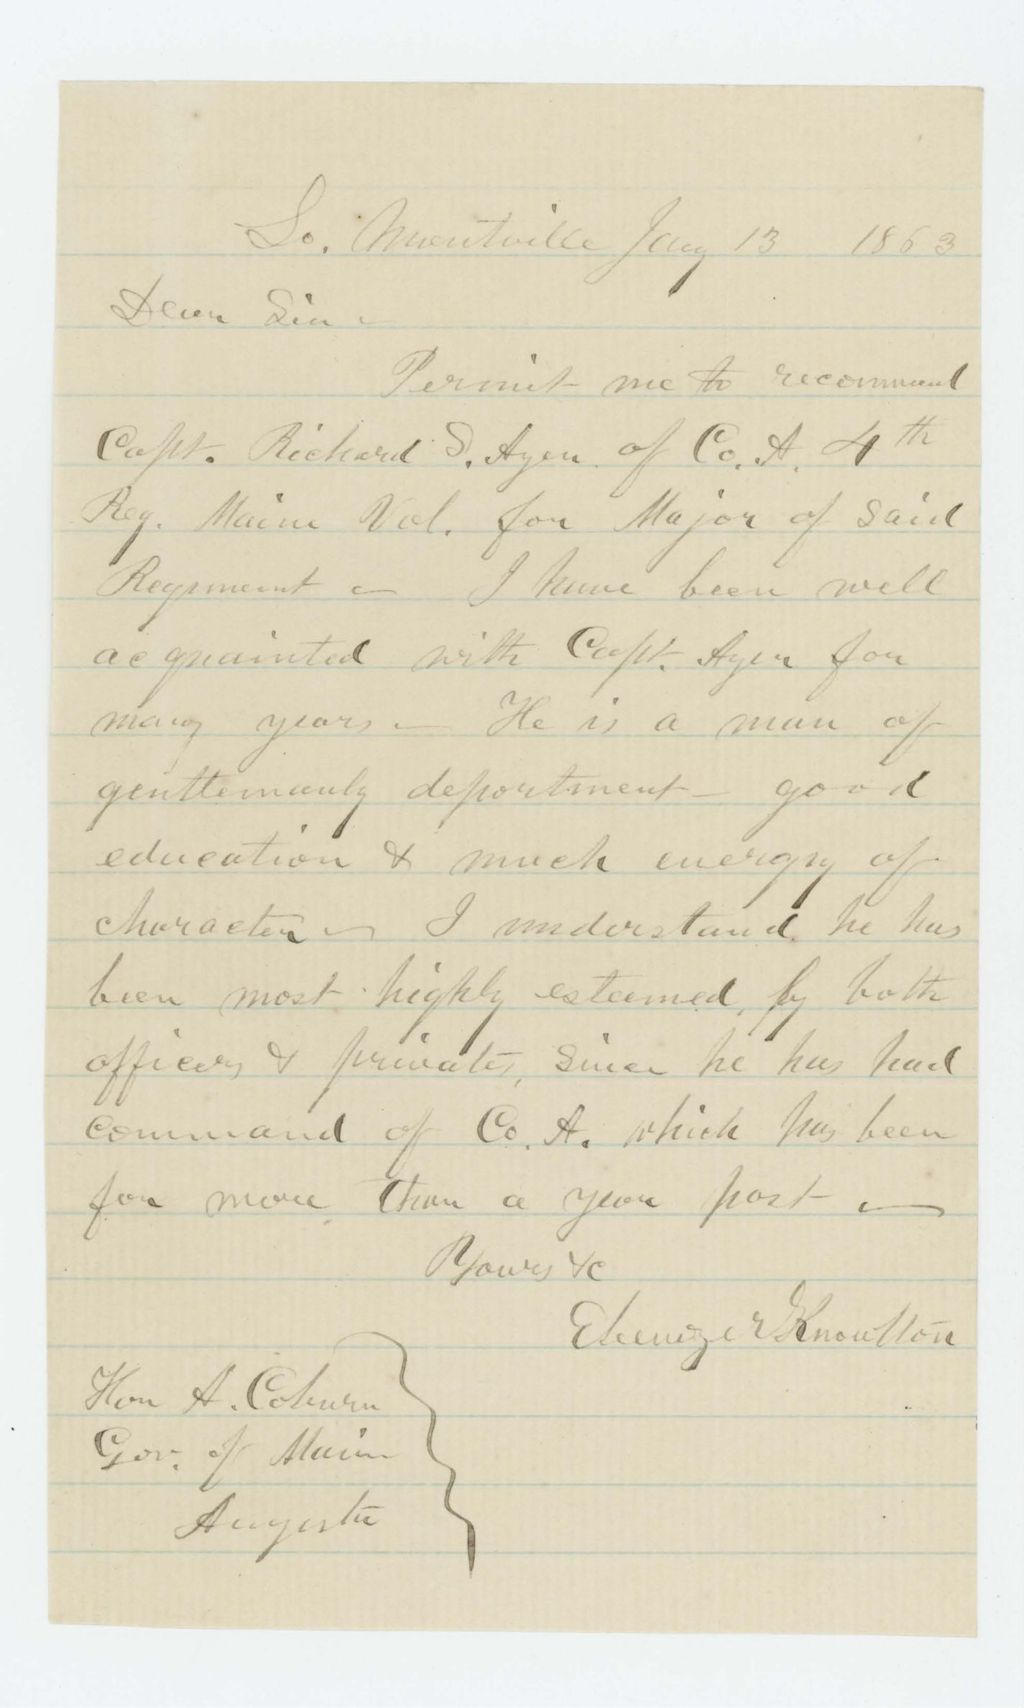 So. Montville Jany 13 1863
Dear Sir –
Permit me to recommend
Capt. Richard S. Ayer of Co. A. 4th
Reg. Maine Vol. for Major of said
Regiment – I have been well
acquainted with Capt. Ayer for
many years – He is a man of
gentlemanly deportment – good
education & much energy of
character – I understand he has
been most highly esteemed, by both
officers & privates, since he has had
command of Co. A. which has been
for more than a year past –
Yours &c
Ebenezer Knowlton
Hon A. Coburn
Gov. of Maine
Augusta